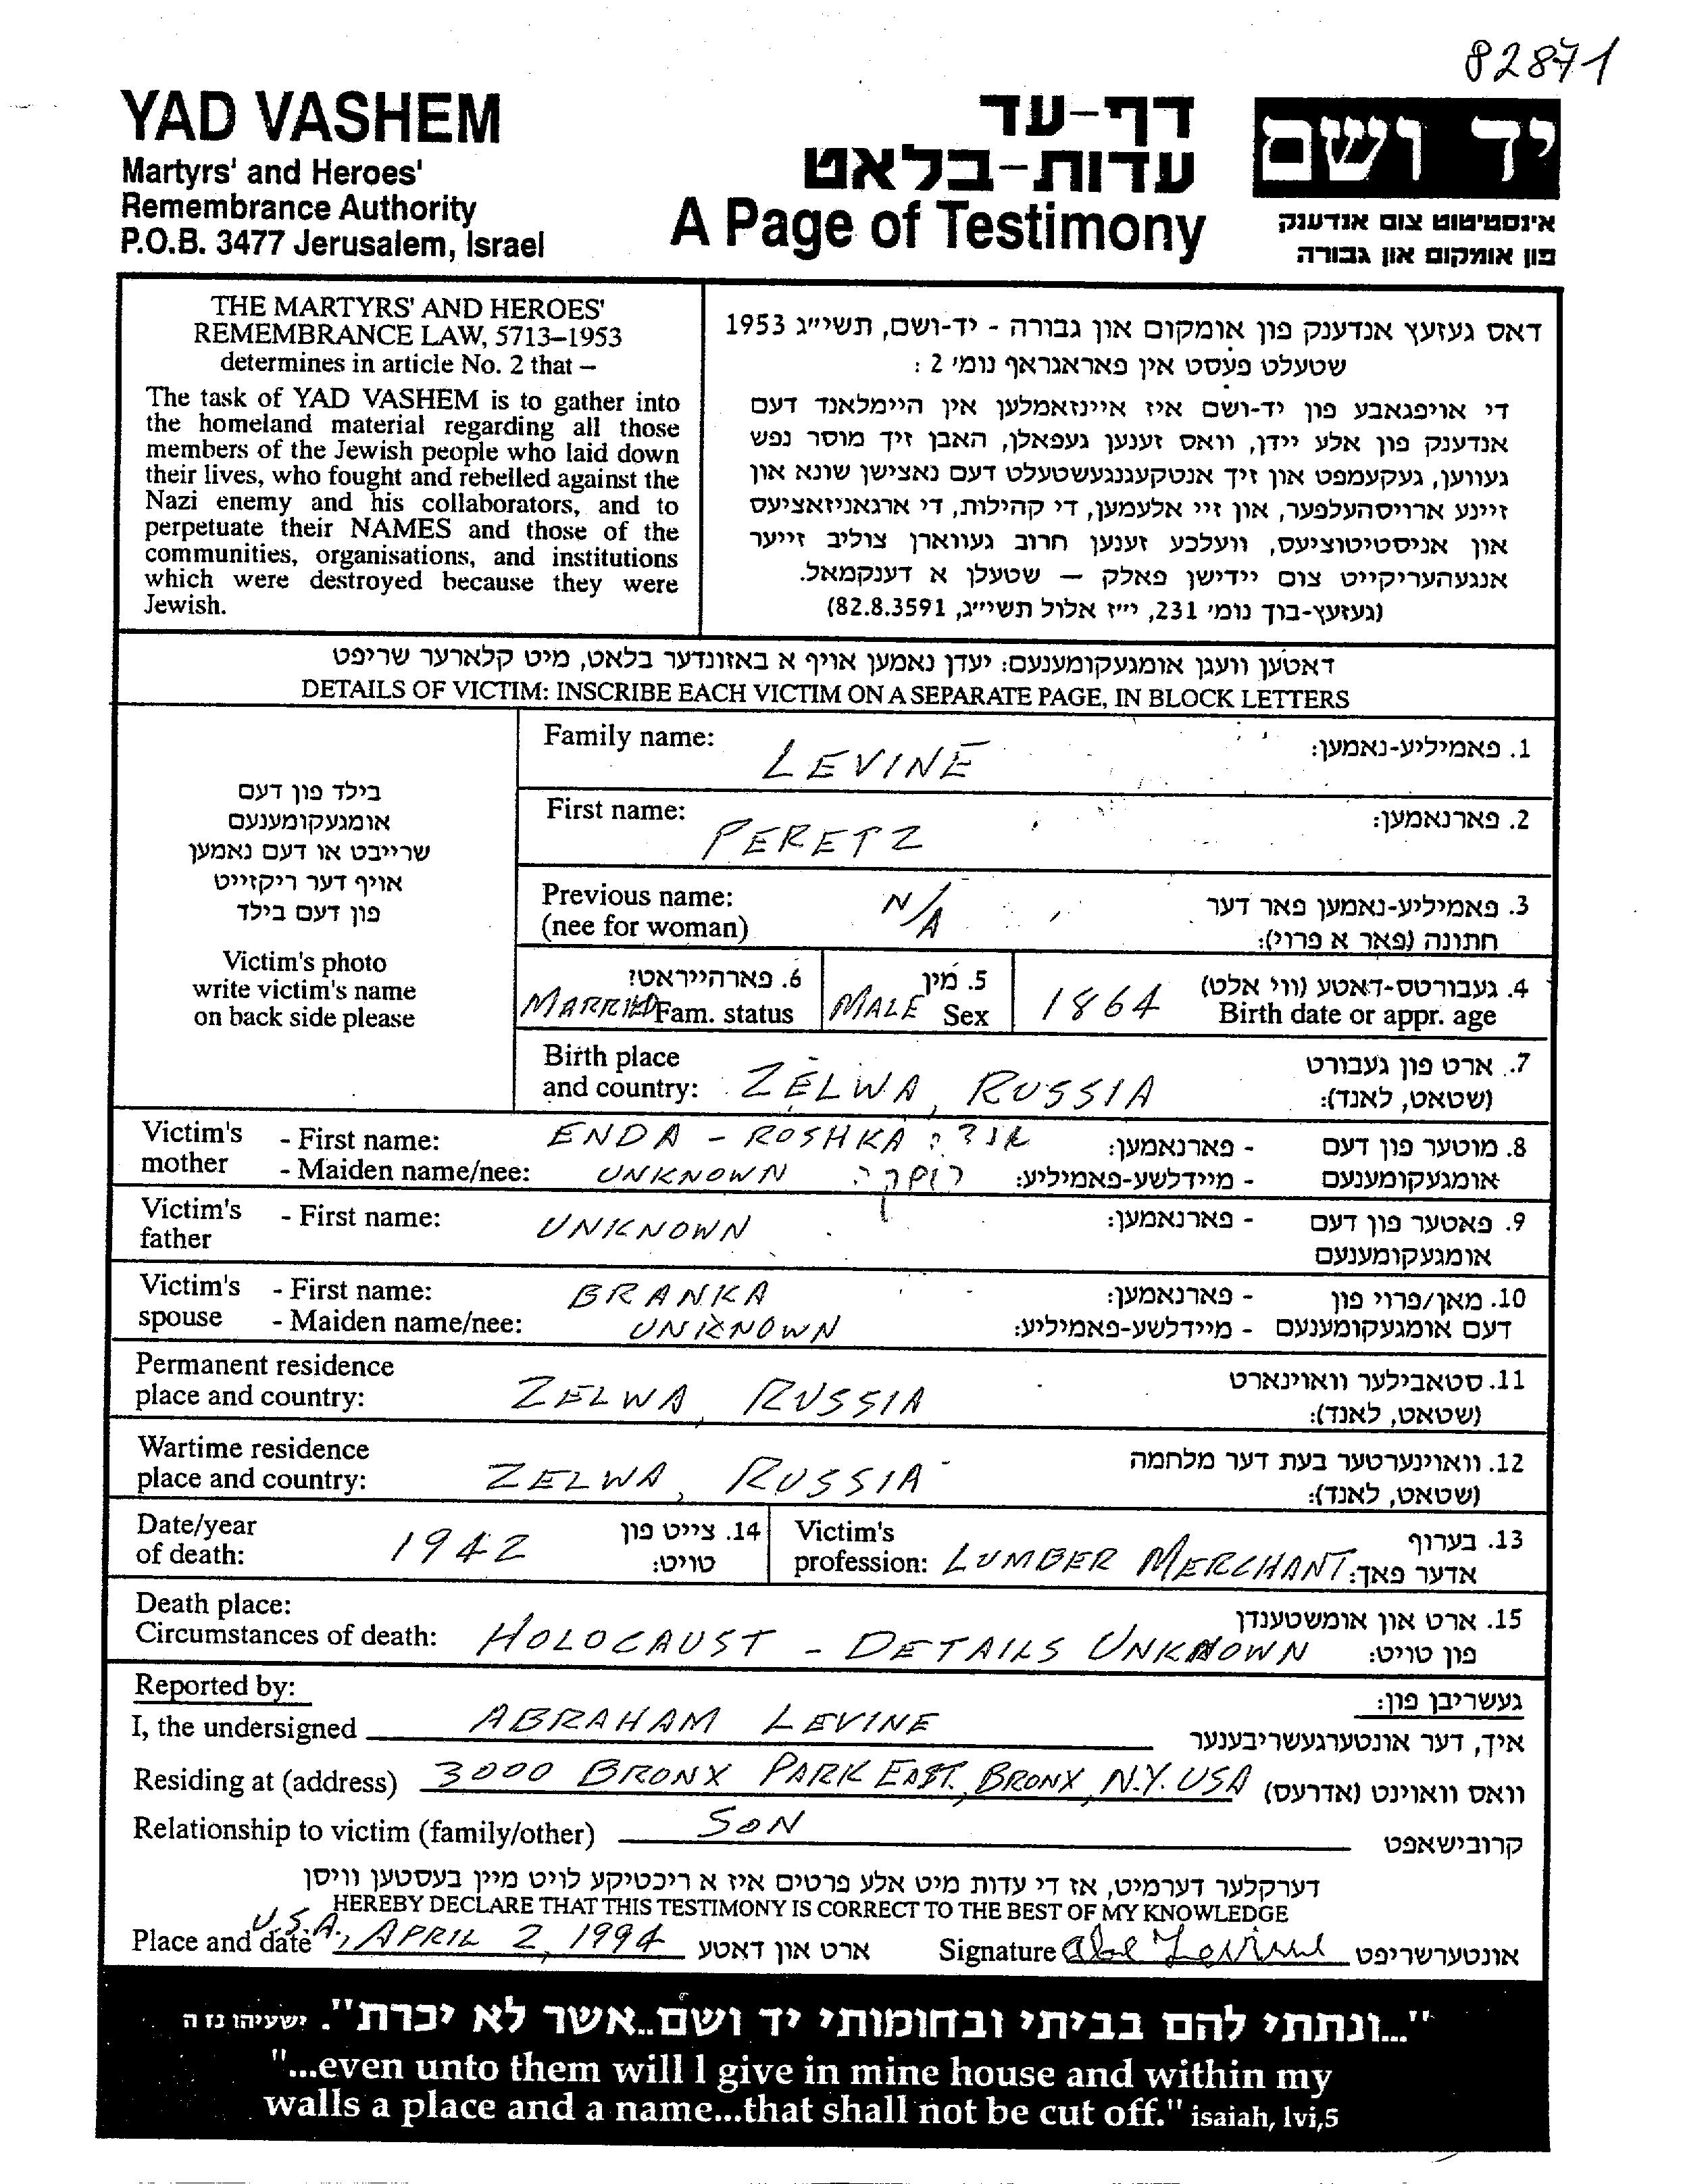 82871
YAD VASHEM
Martyrs' and Heroes'
Remembrance Authority
P.O.B. 3477 Jerusalem, Israel
דף-עד
עדות-בלאט
A Page of Testimony
יד ושם
אינסטיטוט צום אנדענק
פון אומקום און גבורה
THE MARTYRS' AND HEROES'
REMEMBRANCE LAW, 5713–1953
determines in article No. 2 that –
The task of YAD VASHEM is to gather into
the homeland material regarding all those
members of the Jewish people who laid down
their lives, who fought and rebelled against the
Nazi enemy and his collaborators, and to
perpetuate their NAMES and those of the
communities, organisations, and institutions
which were destroyed because they were
Jewish.
דאס געזעץ אנדענק פון אומקום און גבורה - יד-ושם, תשי״ג 1953
שטעלט פעסט אין פאראגראף נומ׳ 2 :
די אויפגאבע פון יד-ושם איז איינזאמלען אין היימלאנד דעם
אנדענק פון אלע יידן, וואס זענען געפאלן, האבן זיך מוסר נפש
געווען, געקעמפט און זיך אנטקעגנגעשטעלט דעם נאצישן שונא און
זיינע ארויסהעלפער, און זיי אלעמען, די קהילות, די ארגאניזאציעס
און אניסטיטוציעס, וועלכע זענען חרוב געווארן צוליב זייער
אנגעהעריקייט צום יידישן פאלק – שטעלן א דענקמאל.
(געזעץ-בוך נומ׳ 231, י״ז אלול תשי״ג, 82.8.3591)
דאטען וועגן אומגעקומענעם: יעדן נאמען אויף א באזונדער בלאט, מיט קלארער שריפט
DETAILS OF VICTIM: INSCRIBE EACH VICTIM ON A SEPARATE PAGE, IN BLOCK LETTERS
בילד פון דעם
אומגעקומענעם
שרייבט או דעם נאמען
אויף דער ריקזייט
פון דעם בילד
Victim's photo
write victim's name
on back side please
Family name: LEVINE 1. פאמיליע-נאמען:
First name: PERETZ 2. פארנאמען:
Previous name: N/A 3. פאמיליע-נאמען פאר דער
(nee for woman) חתונה (פאר א פרוי):
6. פארהייראט? 5. מין 4. געבורטס-דאטע (ווי אלט)
MARRIED Fam. status MALE Sex 1864 Birth date or appr. age
Birth place 7. ארט פון געבורט
and country: ZELWA, RUSSIA (שטאט, לאנד):
Victim's - First name: ENDA - ROSHKA - פארנאמען: 8. מוטער פון דעם
mother - Maiden name/nee: UNKNOWN - מיידלשע-פאמיליע: אומגעקומענעם
Victim's - First name: UNKNOWN - פארנאמען: 9. פאטער פון דעם
father אומגעקומענעם
Victim's - First name: BRANKA - פארנאמען: 10. מאן/פרוי פון
spouse - Maiden name/nee: UNKNOWN - מיידלשע-פאמיליע: דעם אומגעקומענעם
Permanent residence 11. סטאבילער וואוינארט
place and country: ZELWA, RUSSIA (שטאט, לאנד):
Wartime residence 12. וואוינערטער בעת דער מלחמה
place and country: ZELWA, RUSSIA (שטאט, לאנד):
Date/year 14. צייט פון Victim's 13. בערוף
of death: 1942 טויט: profession: LUMBER MERCHANT אדער פאך:
Death place: 15. ארט און אומשטענדן
Circumstances of death: HOLOCAUST - DETAILS UNKNOWN פון טויט:
Reported by: געשריבן פון:
I, the undersigned ABRAHAM LEVINE איך, דער אונטערגעשריבענער
Residing at (address) 3000 BRONX PARK EAST, BRONX, N.Y. USA וואס וואוינט (אדרעס)
Relationship to victim (family/other) SON קרובישאפט
דערקלער דערמיט, אז די עדות מיט אלע פרטים איז א ריכטיקע לויט מיין בעסטען וויסן
HEREBY DECLARE THAT THIS TESTIMONY IS CORRECT TO THE BEST OF MY KNOWLEDGE
Place and date U.S.A., APRIL 2, 1994 ארט און דאטע Signature Abe Levine אונטערשריפט
"...ונתתי להם בביתי ובחומותי יד ושם..אשר לא יכרת". ישעיהו נז ה
"...even unto them will I give in mine house and within my
walls a place and a name...that shall not be cut off." isaiah, lvi,5